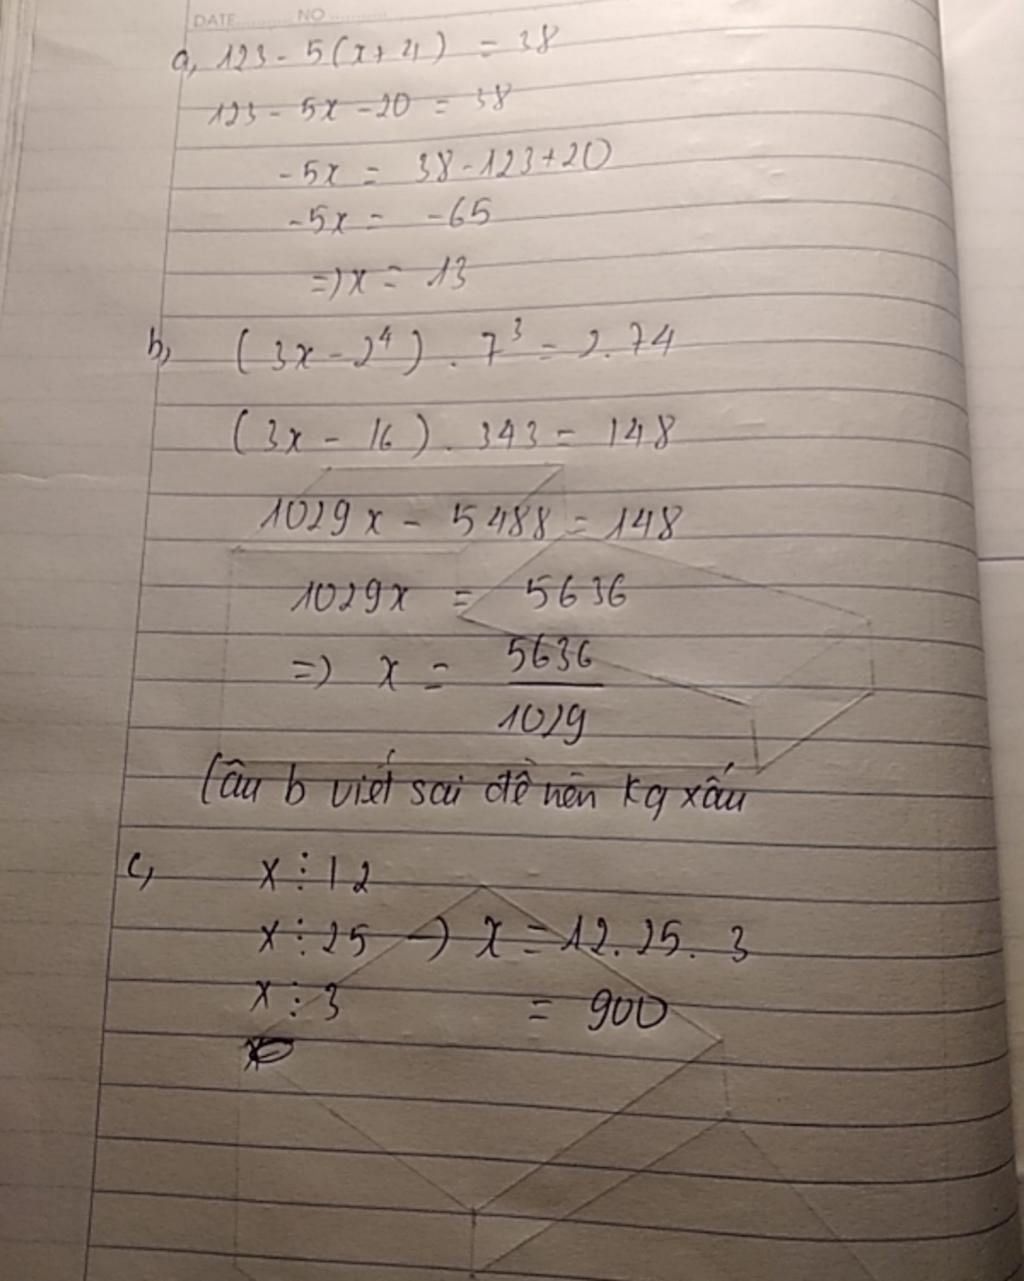 DATE NO
a, 123 - 5(x + 4) = 38
123 - 5x - 20 = 38
-5x = 38 - 123 + 20
-5x = -65
=> x = 13
b, (3x - 2⁴) . 7³ = 2.74
(3x - 16) . 343 = 148
1029x - 5488 = 148
1029x = 5636
=> x = 5636/1029
(âu b viết sai đề nên kq xấu
c, x ⋮ 12
x ⋮ 25 → x = 12.25.3
x ⋮ 3 = 900